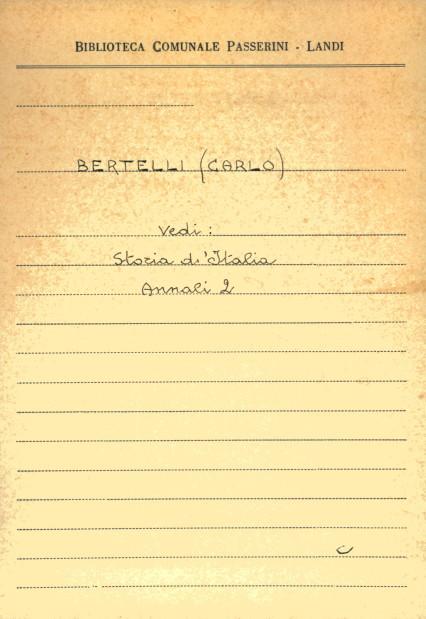 BIBLIOTECA COMUNALE PASSERINI - LANDI
BERTELLI (CARLO)
Vedi:
Storia d'Italia
Annali 2